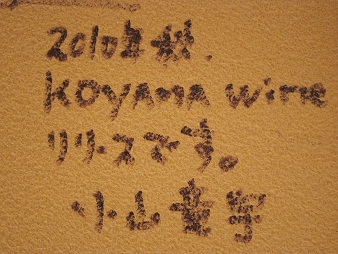 2010年秋.
KOYAMA wine
リリースです。
小山竜宇